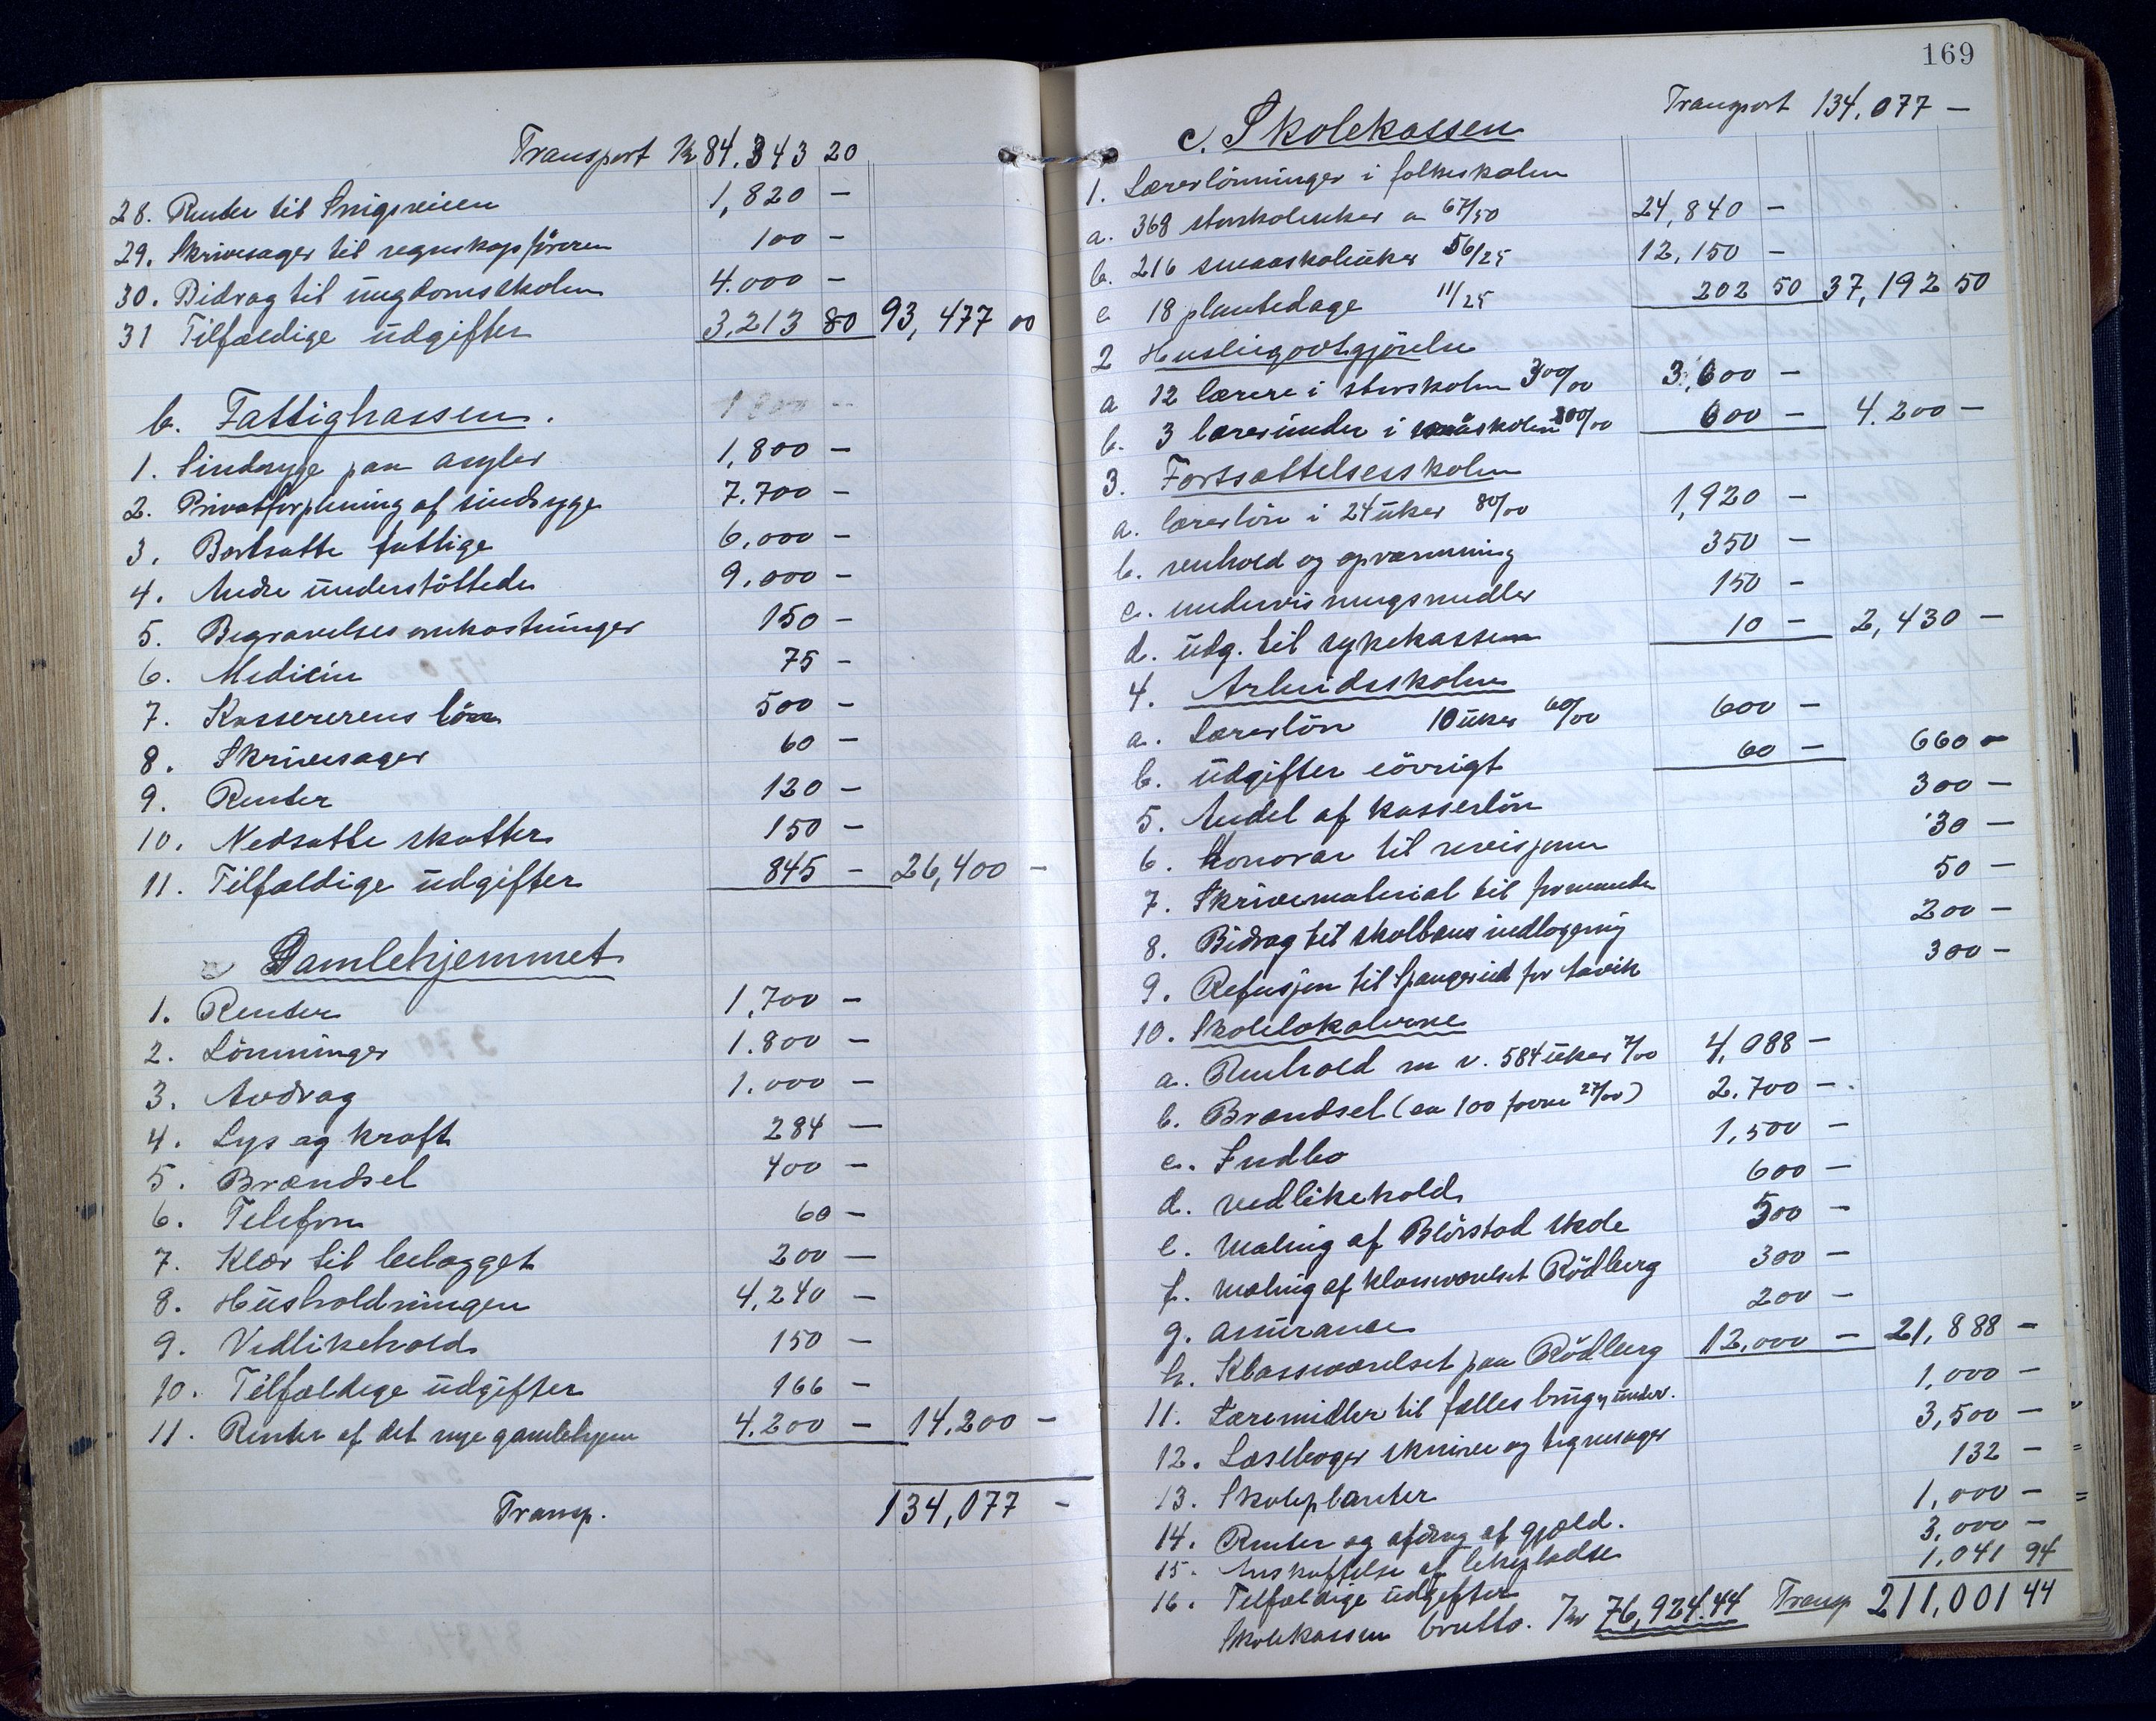 Transport Kr 84.343 20
28. Renter til Snigsveien 1,820 —
29. Skrivesager til regnskapsföreren 100 —
30. Bidrag til ungdomsskolen 4.000 —
31 Tilfældige udgifter 3,213 80 93,477 00
b. Fattigkassen.
1. Sindsyge paa asyler 1,800 —
2. Privatforpleining af sindsyge 7.700 —
3. Bortsatte fattige 6,000 —
4. Andre understöttede 9,000 —
5. Begravelsesomkostninger 150 —
6. Medicin 75 —
7. Kassererens lön 500 —
8. Skrivesager 60 —
9. Renter 120 —
10. Nedsatte skatter 150 —
11. Tilfældige udgifter 845 — 26,400 —
Gamlehjemmet
1. Renter 1,700 —
2. Lönninger 1.800 —
3. Avdrag 1.000 —
4. Lys og kraft 284 —
5. Brændsel 400 —
6. Telefon 60 —
7. Klær til belægget 200 —
8. Husholdningen 4,240 —
9. Vedlikehold 150 —
10. Tilfældige udgifter 166 —
11. Renter af det nye gamlehjem 4.200 — 14,200 —
Transp. 134,077 —
169
Transport 134,077 —
c. Skolekassen
1. Lærerlönninger i folkeskolen
a. 368 storskoleuker a 67/50 24,840 —
b. 216 smaaskoleuker 56/25 12,150 —
c 18 plantedage 11/25 202 50 37,192 50
2 Husleiegodtgjörelse
a 12 lærere i storskolen 300/00 3,600 —
b. 3 lærerinder i småskolen 200/00 600 — 4.200 —
3. Fortsættelsesskolen
a. lærerlön i 24 uker 80/00 1,920 —
b. renhold og opvarmning 350 —
c. undervisningsmidler 150 —
d. udg. til sykekassen 10 — 2,430 —
4. Arbeidsskolen
a. Lærerlön 10 uker 60/00 600 —
b. udgifter iövrigt 60 — 660 —
5. Andel af kasserlön 300 —
6. Honorar til revisjonen 30 —
7. Skrivematerial til formanden 50 —
8. Bidrag til skolbarns indlogering 200 —
9. Refusjon til Spangereid for Aavik 300 —
10. Skolelokalerne
a. Renhold m v. 584 uker 7/00 4,088 —
b. Brændsel (ca 100 favne 27/00) 2.700 —
c. Indbo 1,500 —
d. vedlikehold 600 —
e. Maling af Blörstad skole 500 —
f. Maling af klasseværelset Rödberg 300 —
g. assurance 200 —
h. Klasseværelset paa Rödberg 12,000 — 21,888 —
11. Læremidler til fælles brug v. underv. 1,000 —
12. Læsebøger skrive og tegnesager 3,500 —
13. Skoleplanter 132 —
14. Renter og afdrag af gjæld. 1,000 —
15. Anskaffelse af lekepladse 3,000 —
16. Tilfældige udgifter 1,041 94
Skolekassen brutto. Kr 76,924.44 Transp 211,001 44